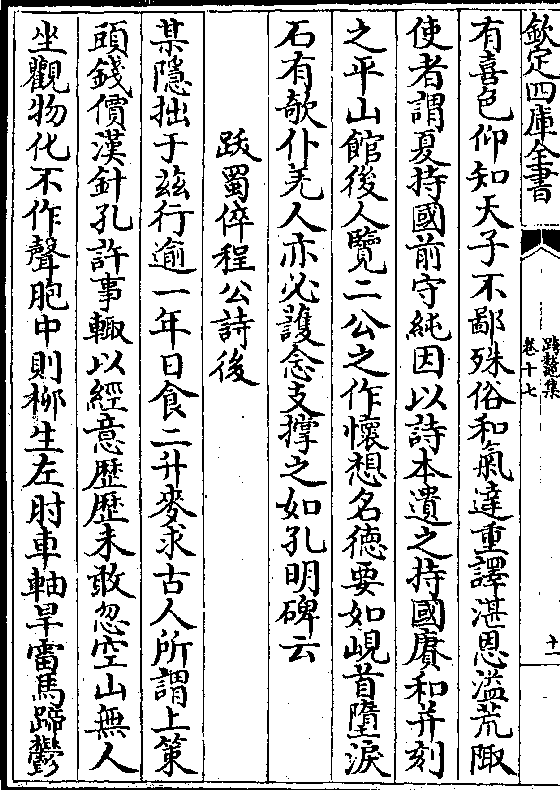 欽定四庫全書
跨鼇集
卷十七
十一
有喜色仰知天子不鄙殊俗和氣達重譯湛恩溢荒陬
使者謂夏持國前守純因以詩本遺之持國賡和并刻
之平山館後人覽二公之作懷想名德要如峴首墮淚
石有欹仆羌人亦必護念支撐之如孔明碑云
跋蜀倅程公詩後
某隱拙于茲行逾一年日食二升麥求古人所謂上策
頭錢價漢針孔許事輙以經意歷歷未敢忽空山無人
坐觀物化不作聲胞中則栁生左肘車軸旱雷馬蹄鬱